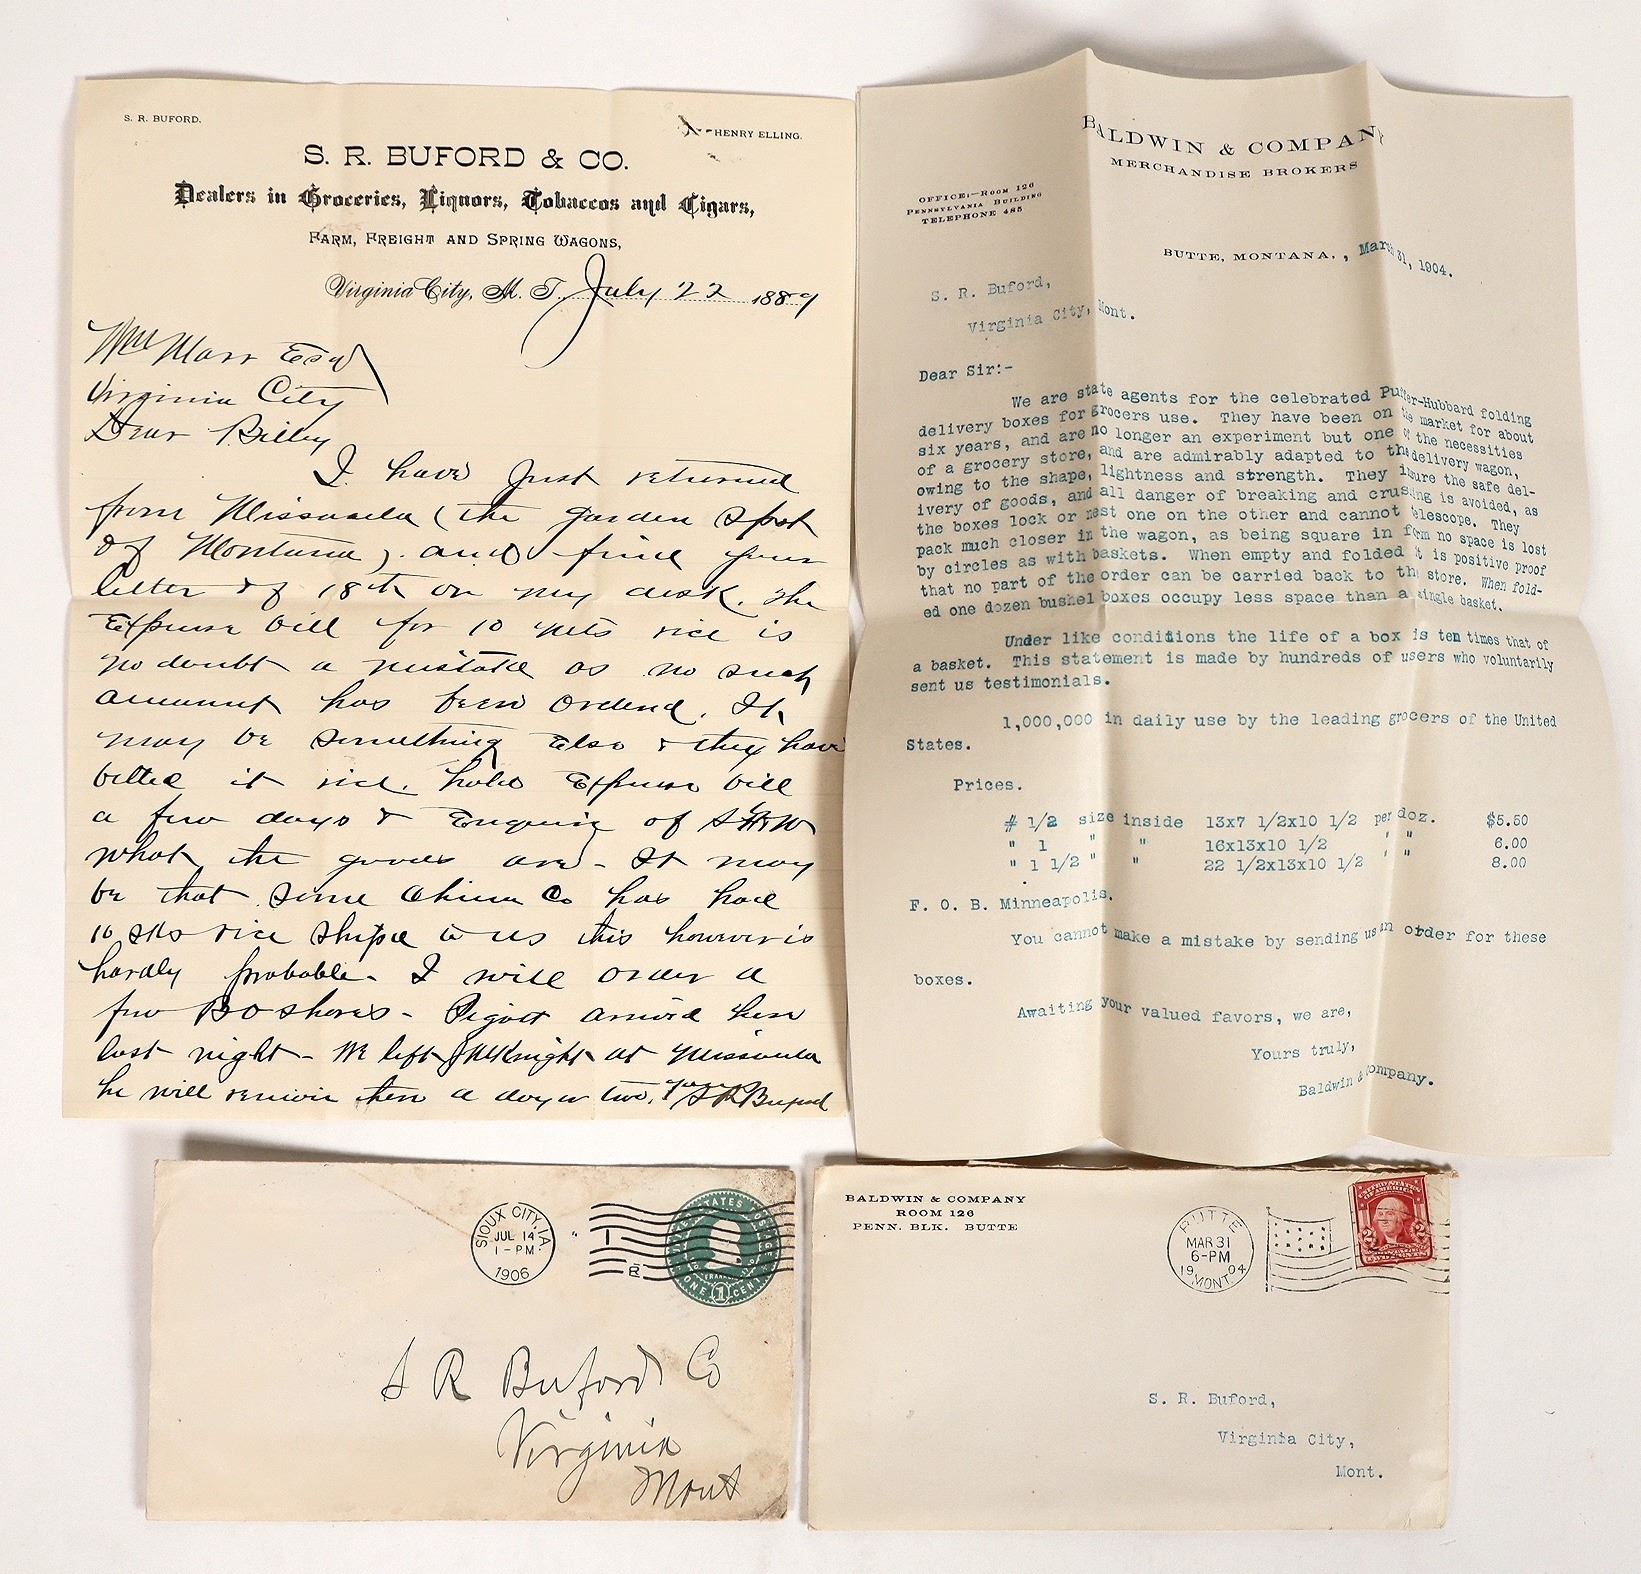 S. R. BUFORD.
HENRY ELLING.
S. R. BUFORD & CO.
Dealers in Groceries, Liquors, Tobaccos and Cigars,
FARM, FREIGHT AND SPRING WAGONS,
Virginia City, M. T. July 22 1889
Wm Marr Esq
Virginia City
Dear Billy
I have just returned
from Missoula (the garden spot
of Montana). and find your
letter of 18th on my desk. The
Express bill for 10 rice is
no doubt a mistake as no such
amount has been ordered. It
may be something else & they have
billed it rice. hold Express bill
a few days & Enquire of
what the goods are - It may
be that some China Co has had
10 sks rice shiped to us this however is
hardly probable - I will order a
few shovels - Pigott arrived here
last night - We left McKnight at Missoula
he will remain there a day or two. SR Buford
BALDWIN & COMPANY
MERCHANDISE BROKERS
OFFICE:-ROOM 126
PENNSYLVANIA BUILDING
TELEPHONE 485
BUTTE, MONTANA, , March 31, 1904.
S. R. Buford,
Virginia City, Mont.
Dear Sir:-
We are state agents for the celebrated Putter-Hubbard folding
delivery boxes for grocers use. They have been on the market for about
six years, and are no longer an experiment but one of the necessities
of a grocery store, and are admirably adapted to the delivery wagon,
owing to the shape, lightness and strength. They insure the safe del-
ivery of goods, and all danger of breaking and crushing is avoided, as
the boxes lock or nest one on the other and cannot telescope. They
pack much closer in the wagon, as being square in form no space is lost
by circles as with baskets. When empty and folded it is positive proof
that no part of the order can be carried back to the store. When fold-
ed one dozen bushel boxes occupy less space than a single basket.
Under like conditions the life of a box is ten times that of
a basket. This statement is made by hundreds of users who voluntarily
sent us testimonials.
1,000,000 in daily use by the leading grocers of the United
States.
Prices.
# 1/2 size inside 13x7 1/2x10 1/2 per doz. $5.50
" 1 " " 16x13x10 1/2 " " 6.00
" 1 1/2 " " 22 1/2x13x10 1/2 " " 8.00
F. O. B. Minneapolis.
You cannot make a mistake by sending us an order for these
boxes.
Awaiting your valued favors, we are,
Yours truly,
Baldwin & Company.
SIOUX CITY, IA.
JUL 14
1-PM
1906
UNITED STATES POSTAGE
FRANKLIN
ONE 1 CENT
S R Buford Co
Virginia
Mont
BALDWIN & COMPANY
ROOM 126
PENN. BLK. BUTTE
BUTTE
MAR 31
6-PM
1904
MONT.
UNITED STATES
OF AMERICA
2 2
S. R. Buford,
Virginia City,
Mont.